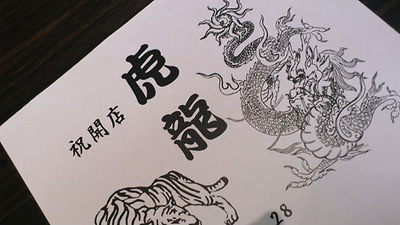 虎
龍
祝開店
28